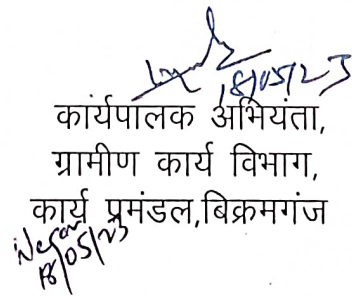 18/05/23
कार्यपालक अभियंता,
ग्रामीण कार्य विभाग,
कार्य प्रमंडल,बिक्रमगंज
18/05/23